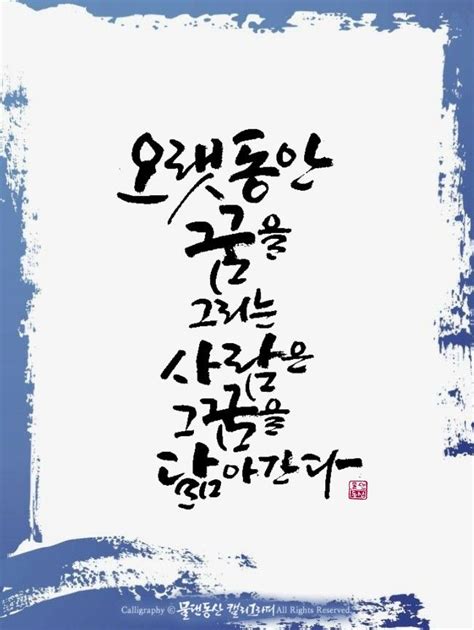 오랫동안
그꿈을
그리는
사람은
그꿈을
닮아간다
Calligraphy ⓒ 물댄동산 캘리그라피 All Rights Reserved.